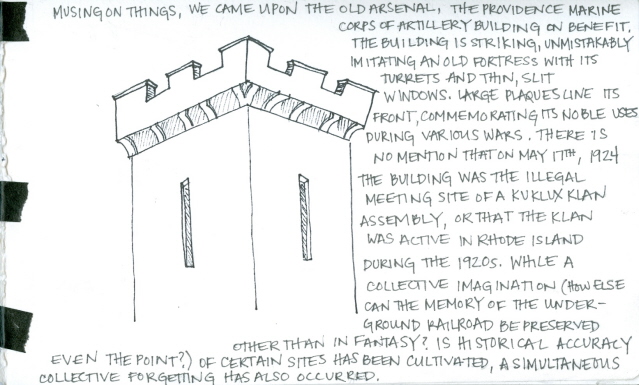 MUSING ON THINGS, WE CAME UPON THE OLD ARSENAL, THE PROVIDENCE MARINE
CORPS OF ARTILLERY BUILDING ON BENEFIT.
THE BUILDING IS STRIKING, UNMISTAKABLY
IMITATING AN OLD FORTRESS WITH ITS
TURRETS AND THIN, SLIT
WINDOWS. LARGE PLAQUES LINE ITS
FRONT, COMMEMORATING ITS NOBLE USES
DURING VARIOUS WARS. THERE IS
NO MENTION THAT ON MAY 17TH, 1924
THE BUILDING WAS THE ILLEGAL
MEETING SITE OF A KU KLUX KLAN
ASSEMBLY, OR THAT THE KLAN
WAS ACTIVE IN RHODE ISLAND
DURING THE 1920S. WHILE A
COLLECTIVE IMAGINATION (HOW ELSE
CAN THE MEMORY OF THE UNDER-
GROUND RAILROAD BE PRESERVED
OTHER THAN IN FANTASY? IS HISTORICAL ACCURACY
EVEN THE POINT?) OF CERTAIN SITES HAS BEEN CULTIVATED, A SIMULTANEOUS
COLLECTIVE FORGETTING HAS ALSO OCCURRED.